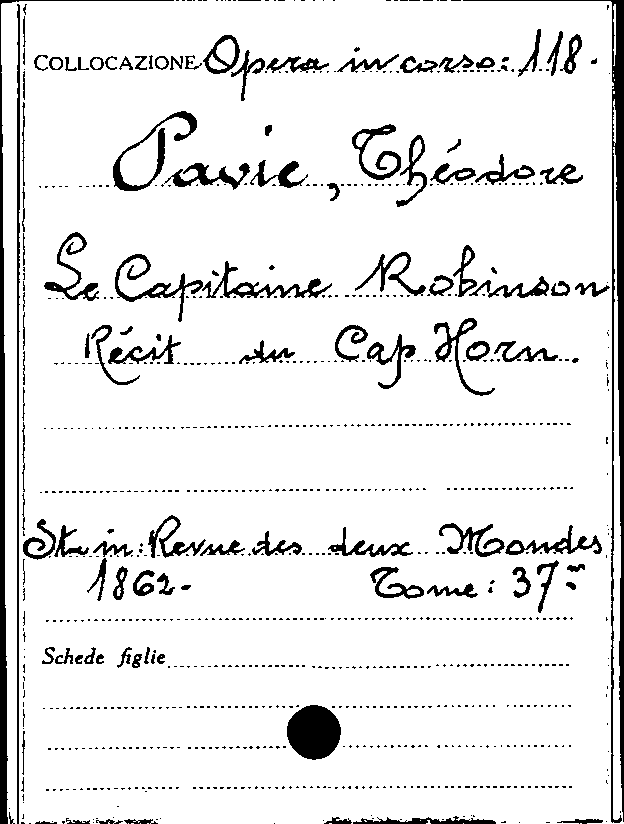 COLLOCAZIONE Opera in corso: 118.
Pavie, Théodore
Le Capitaine Robinson
Récit du Cap Horn.
St. in: Revue des deux Mondes
1862. Tome: 37.m
Schede figlie